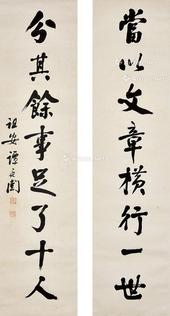 當以文章橫行一世
分其餘事足了十人
祖安譚延闓